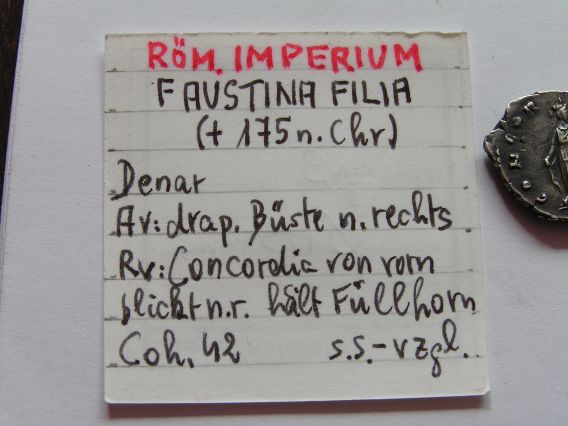 RÖM. IMPERIUM
FAUSTINA FILIA
(+ 175 n. Chr)
Denar
Av: drap. Büste n. rechts
Rv: Concordia von vorn
blickt n.r. hält Füllhorn
Coh. 42 s.s.-vzgl.
CONCOR